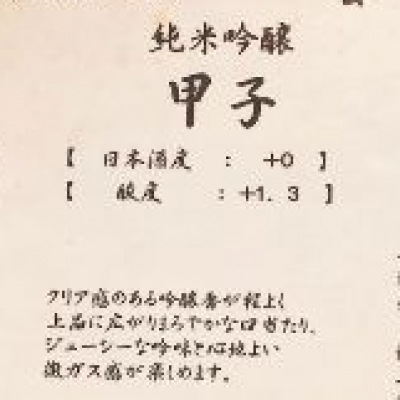 純米吟醸
甲子
【 日本酒度 : +0 】
【 酸度 : +1.3 】
クリア感のある吟醸香が程よく
上品に広がりまろやかな口当たり。
ジューシーな吟味と心地よい
微ガス感が楽しめます。